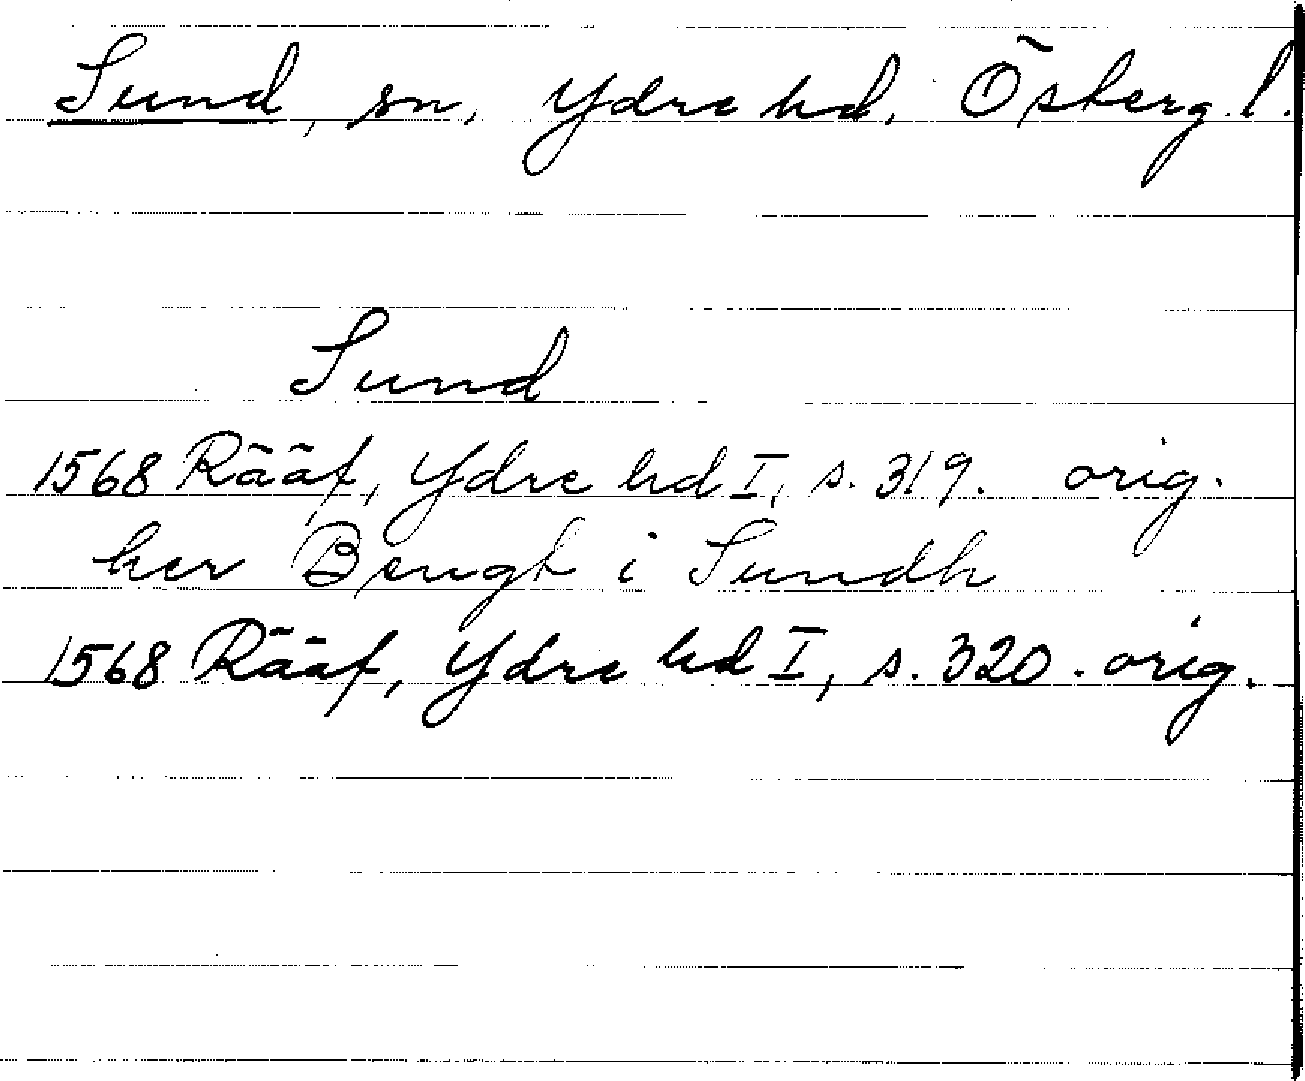 Sund, sn, Ydre hd, Östergl.
Sund
1568 Rääf, Ydre hd I, s. 319. orig.
her Bengt i Sundh
1568 Rääf, Ydre hd I, s. 320. orig.